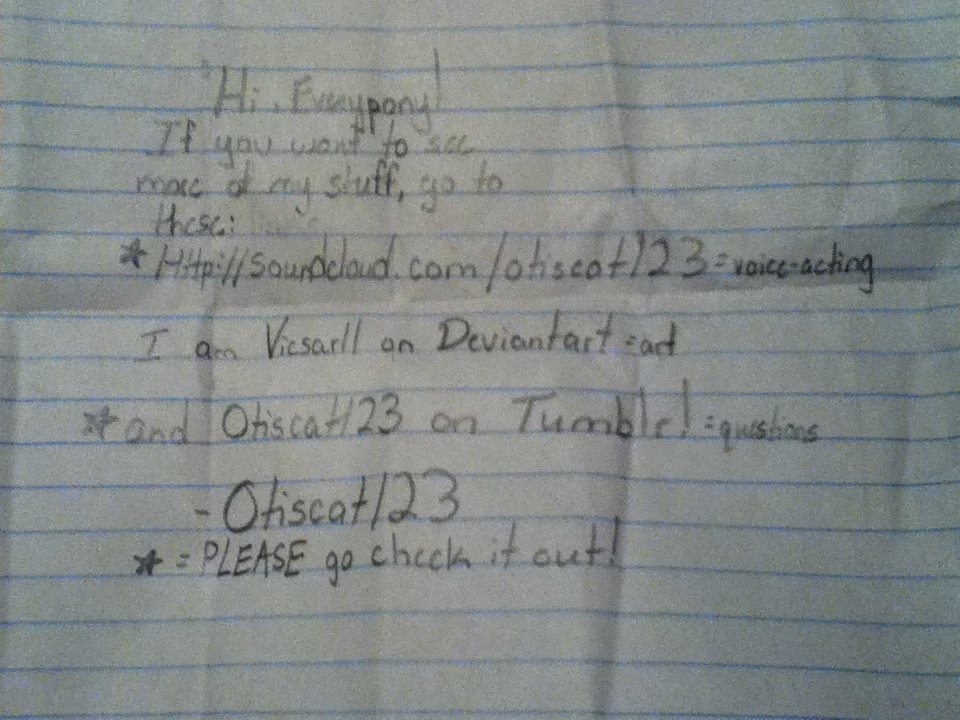 Hi, Everypony!
If you want to see
more of my stuff, go to
these:
* Http://soundcloud.com/otiscat123 = voice-acting
I am Vicsarll on Deviantart = art
* and Otiscat123 on Tumblr! = questions
- Otiscat123
* = PLEASE go check it out!